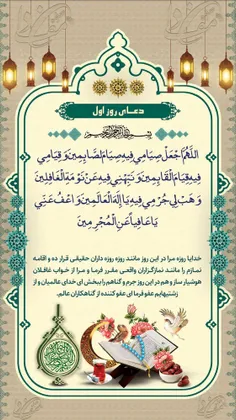 دعای روز اول
بسم الله الرحمن الرحیم
اَللّهُمَّ اجْعَلْ صِیامی فیهِ صِیامَ الصّائِمینَ وَ قِیامی
فیهِ قِیامَ الْقائِمینَ وَ نَبِّهْنی فیهِ عَنْ نَوْمَةِ الْغافِلینَ
وَ هَبْ لی جُرْمی فیهِ یا اِلهَ الْعالَمینَ وَ اعْفُ عَنّی
یا عافِیاً عَنِ الْمُجْرِمینَ
خدایا روزه مرا در این روز مانند روزه روزه داران حقیقی قرار ده و اقامه
نمازم را مانند نمازگزاران واقعی مقرر فرما و مرا از خواب غافلان
هوشیار ساز و هم در این روز جرم و گناهم را ببخش ای خدای عالمیان و از
زشتیهایم عفو فرما ای عفو کننده از گناهکاران عالم.